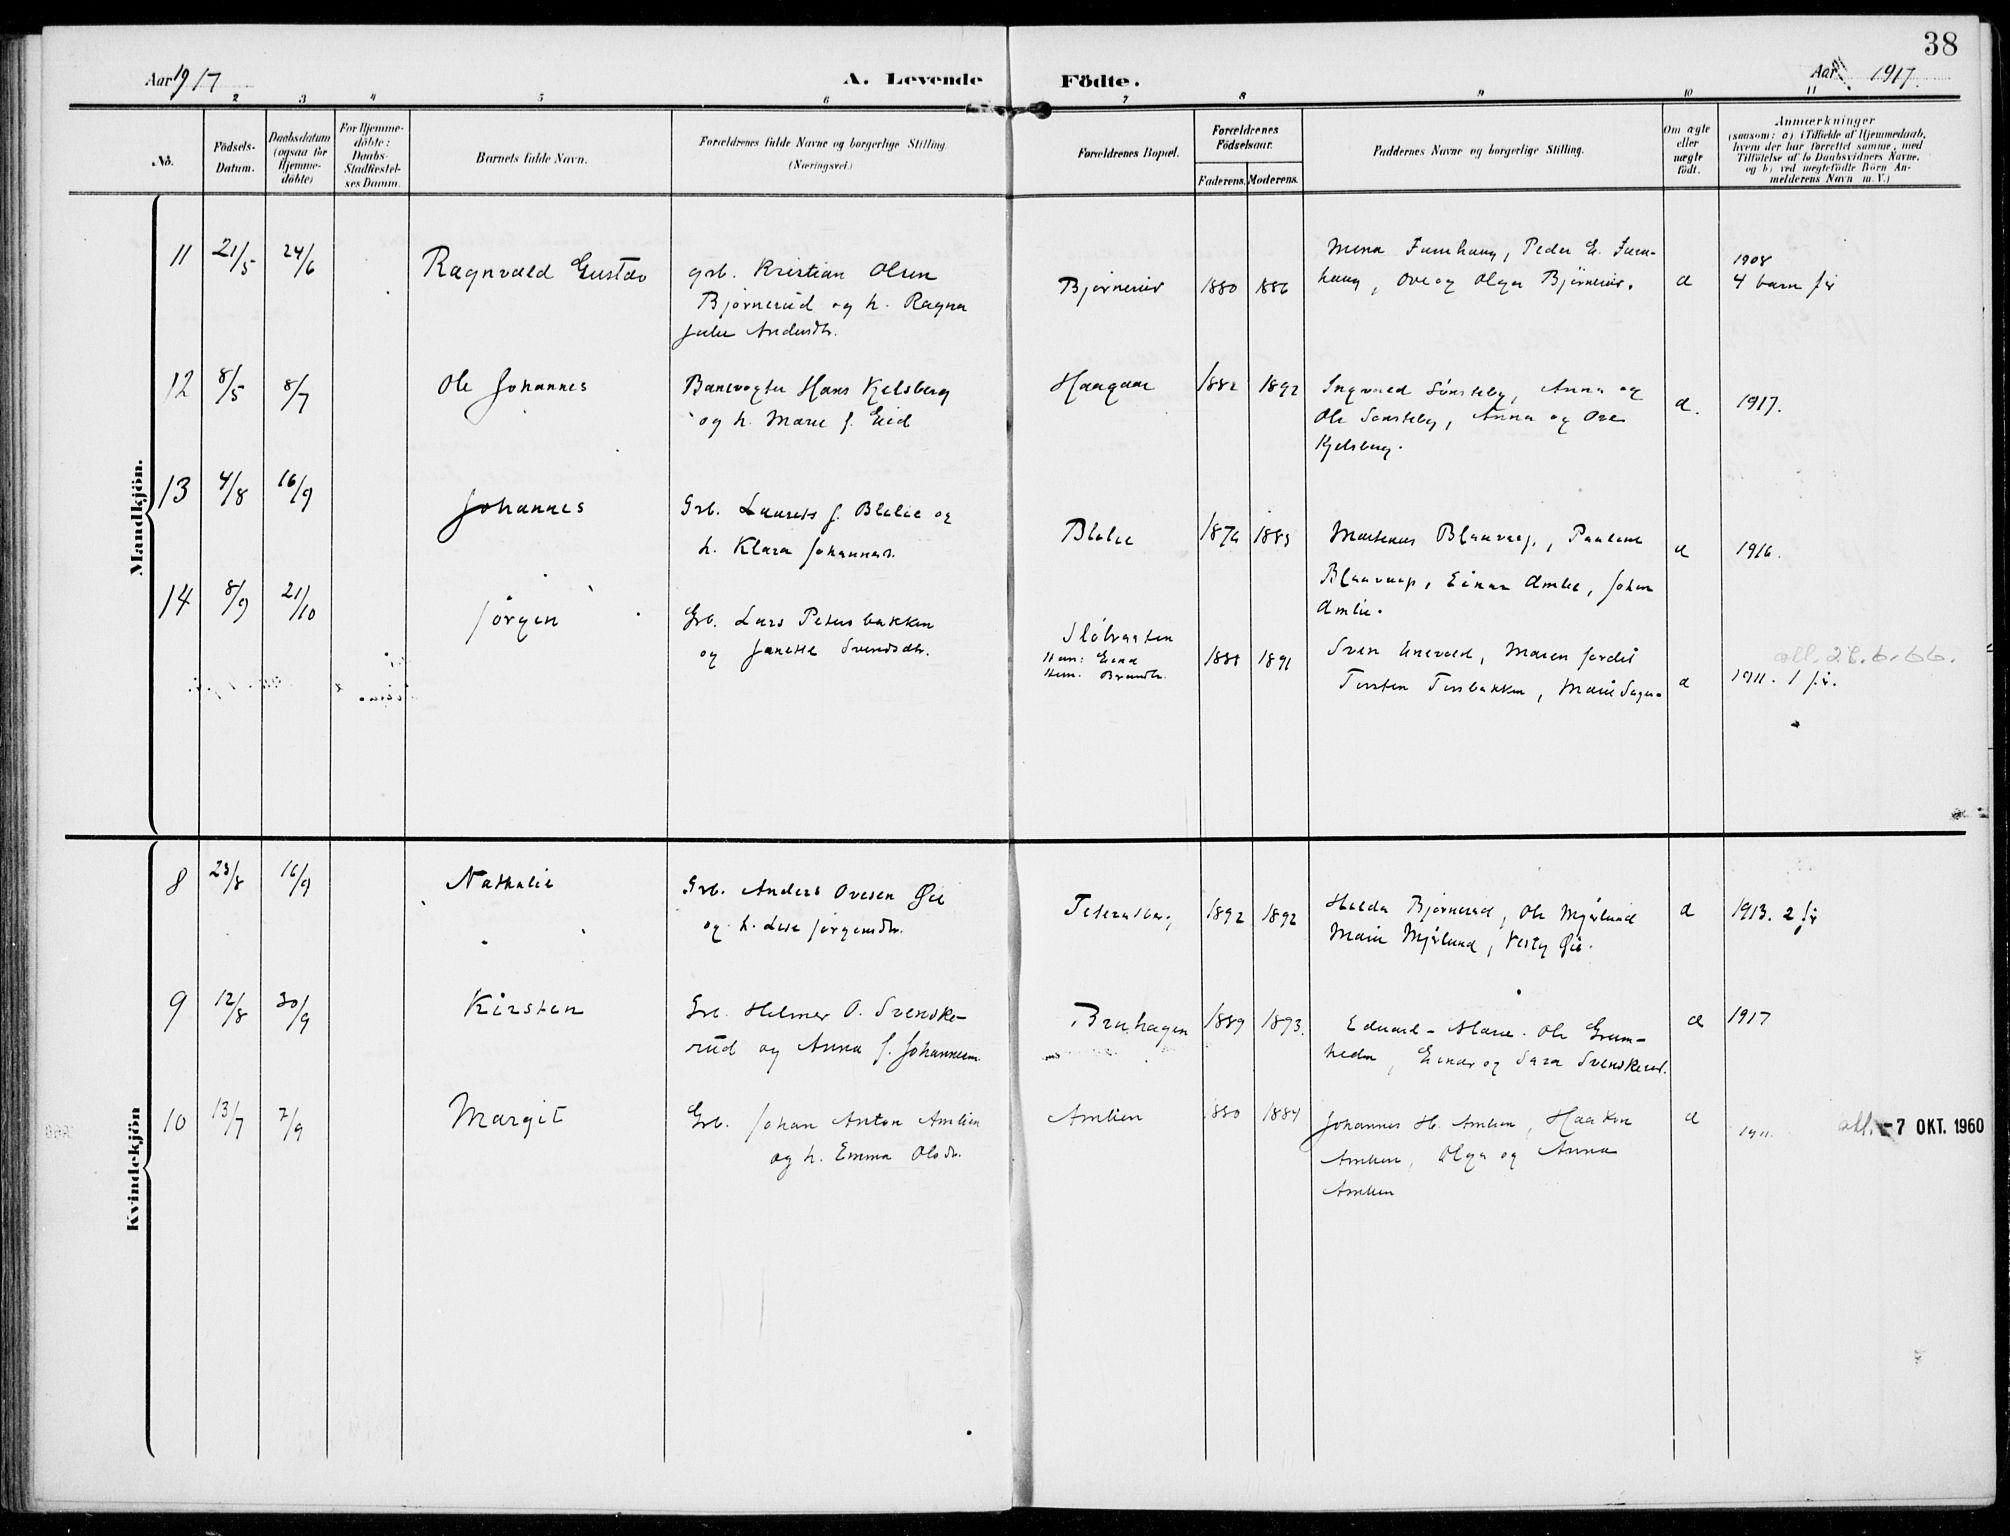 38
Aar 1917
A. Levende
Födte.
Aar 1917.
2 3 4 5 6 7 8 9 10 11
No.
Födsels-
Datum.
Daabsdatum
(ogsaa for
Hjemme-
döbte)
For Hjemme-
döbte:
Daabs-
Stadfæstel-
ses Datum.
Barnets fulde Navn.
Forældrenes fulde Navne og borgerlige Stilling.
(Næringsvei.)
Forældrenes Bopæl.
Forældrenes
Födselsaar.
Faderens. Moderens.
Faddernes Navne og borgerlige Stilling.
Om ægte
eller
uægte
födt.
Anmærkninger
(saasom: a) i Tilfælde af Hjemmedaab,
hvem der har forrettet samme, med
Tilföielse af to Daabsvidners Navne.
og b) ved uægtefödte Börn An-
melderens Navn m. V.)
Mandkjön.
11 21/5 24/6 Ragnvald Gustav
grb. Kristian Olsen
Bjørnerud og h. Ragna
Julie Andersdtr.
Bjørnerud 1880 1886
Mina Furuhaug, Peder E. Furu-
haug, Ove og Olga Bjørnerud.
a
1908
4 barn før
12 8/5 8/7 Ole Johannes
Banevogter Hans Kjelsberg
og h. Marie f. Eid
Haagaar 1882 1892
Ingvald Sønsteby, Anna og
Ole Sønsteby, Anna og Ove
Kjelsberg.
a. 1917.
13 4/8 16/9 Johannes
Grb. Laurits f. Blilie og
h. Klara Johannesd.
Blilie 1876 1885
Martinus Blaavarp, Pauline
Blaavarp, Einar Amlie, Johan
Amlie.
a 1916.
14 8/9 21/10 Jørgen
Grb. Lars Petersbakken
og Janette Svendsdtr.
Han: Eina
Hun: Brandb.
1888 1891
Sven Enevold, Maren Jordet
Torsten Torsbakken, Marie
a
att. 28.6.66.
1911. 1 før.
Kvindekjön
8 23/8 16/9 Nathalie
Grb. Anders Ovesen Øie
og h. Lise Jørgensdtr.
1892 1892
Hilda Bjørnerud, Ole Mjørlund
Marie Mjørlund, Øie.
a 1913. 2 før
9 12/8 30/9 Kirsten
Grb. Helmer O. Svenske-
rud og Anna f. Johannesen.
Brahagen 1889 1893.
Eduard - Marie. Ole Grim-
Einar og Sara Svenskerud.
a 1917
10 13/7 7/9 Margit
Grb. Johan Anton Amlien
og h. Emma Olsdtr.
Amlien 1880 1884
Johannes H. Amlien, Haakon
Amlien, Olga og Anna
Amlien
a 1911. att. -7 OKT. 1960